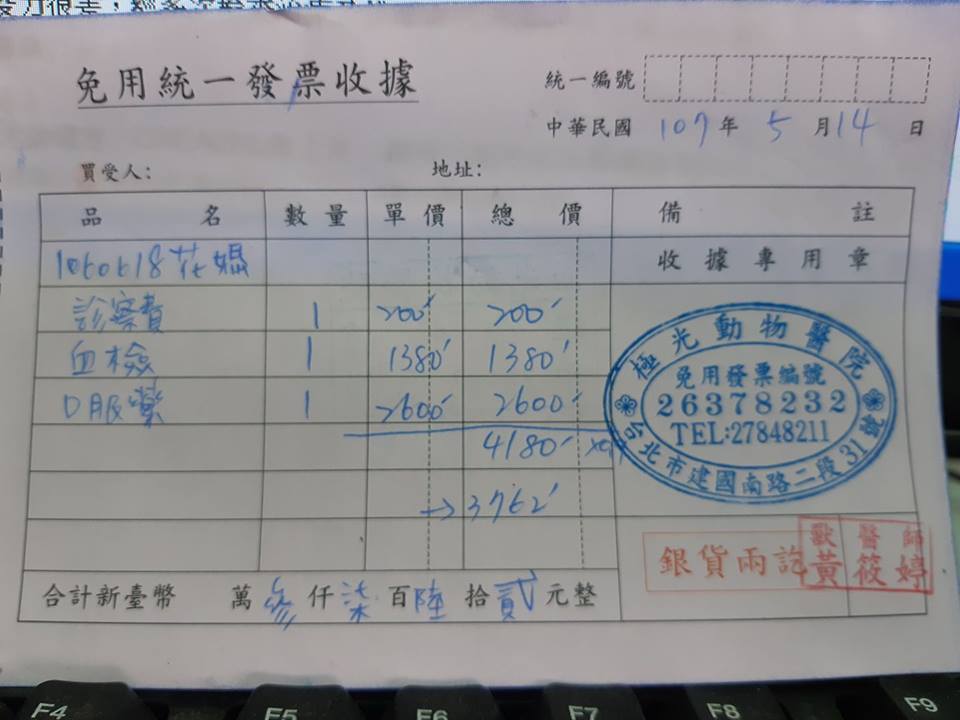 免用統一發票收據
統一編號
中華民國 109年 5月14日
買受人: 地址:
品名 數量 單價 總價 備註
1060618花媽 收據專用章
診察費 1 200 200
血檢 1 1380 1380
口服藥 1 2600 2600
4180
→3762
極光動物醫院
免用發票編號
26378232
TEL:27848211
台北市建國南路二段31號
銀貨兩訖
獸醫師
黃筱婷
合計新臺幣 萬參仟柒百陸拾貳元整
F4 F5 F6 F7 F8 F9